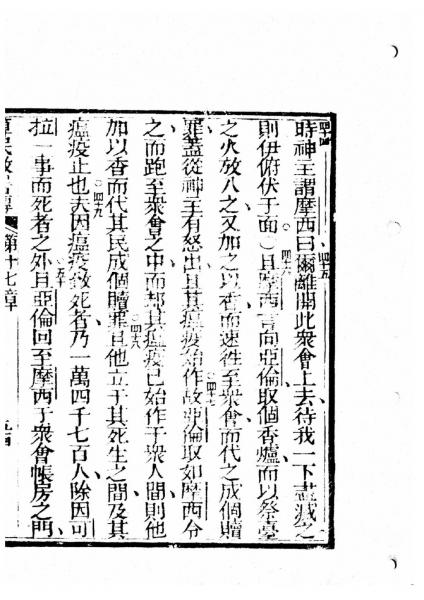 四十四 四十五
時神主謂摩西曰爾離開此衆會上去待我一下盡滅之
則伊俯伏于面〇四十六且摩西言向亞倫取個香爐而以祭臺
之火放入之又加之以香而速徃至衆會而代之成個贖
罪蓋從神主有怒出且其瘟疫始作〇四十七故亞倫取如摩西分
之而跑至衆會之中而卻其瘟疫已始作于衆人間則他
加以香而代其民成個贖罪〇四十八且他立于其死生之間及其
瘟疫止也〇四十九夫因瘟疫致死者乃一萬四千七百人除因可
拉一事而死者之外〇五十且亞倫回至摩西于衆會帳房之門
第十七章